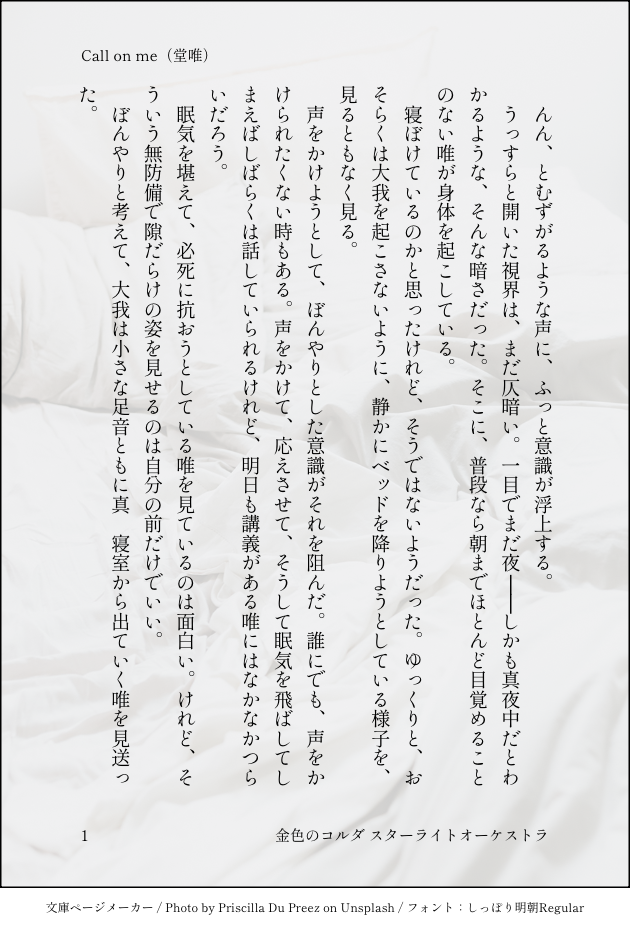 Call on me（堂唯）
　んん、とむずがるような声に、ふっと意識が浮上する。
　うっすらと開いた視界は、まだ仄暗い。一目でまだ夜――しかも真夜中だとわ
かるような、そんな暗さだった。そこに、普段なら朝までほとんど目覚めること
のない唯が身体を起こしている。
　寝ぼけているのかと思ったけれど、そうではないようだった。ゆっくりと、お
そらくは大我を起こさないように、静かにベッドを降りようとしている様子を、
見るともなく見る。
　声をかけようとして、ぼんやりとした意識がそれを阻んだ。誰にでも、声をか
けられたくない時もある。声をかけて、応えさせて、そうして眠気を飛ばしてし
まえばしばらくは話していられるけれど、明日も講義がある唯にはなかなかつら
いだろう。
　眠気を堪えて、必死に抗おうとしている唯を見ているのは面白い。けれど、そ
ういう無防備で隙だらけの姿を見せるのは自分の前だけでいい。
　ぼんやりと考えて、大我は小さな足音ともに真　寝室から出ていく唯を見送っ
た。
1
金色のコルダ スターライトオーケストラ
文庫ページメーカー / Photo by Priscilla Du Preez on Unsplash / フォント：しっぽり明朝Regular